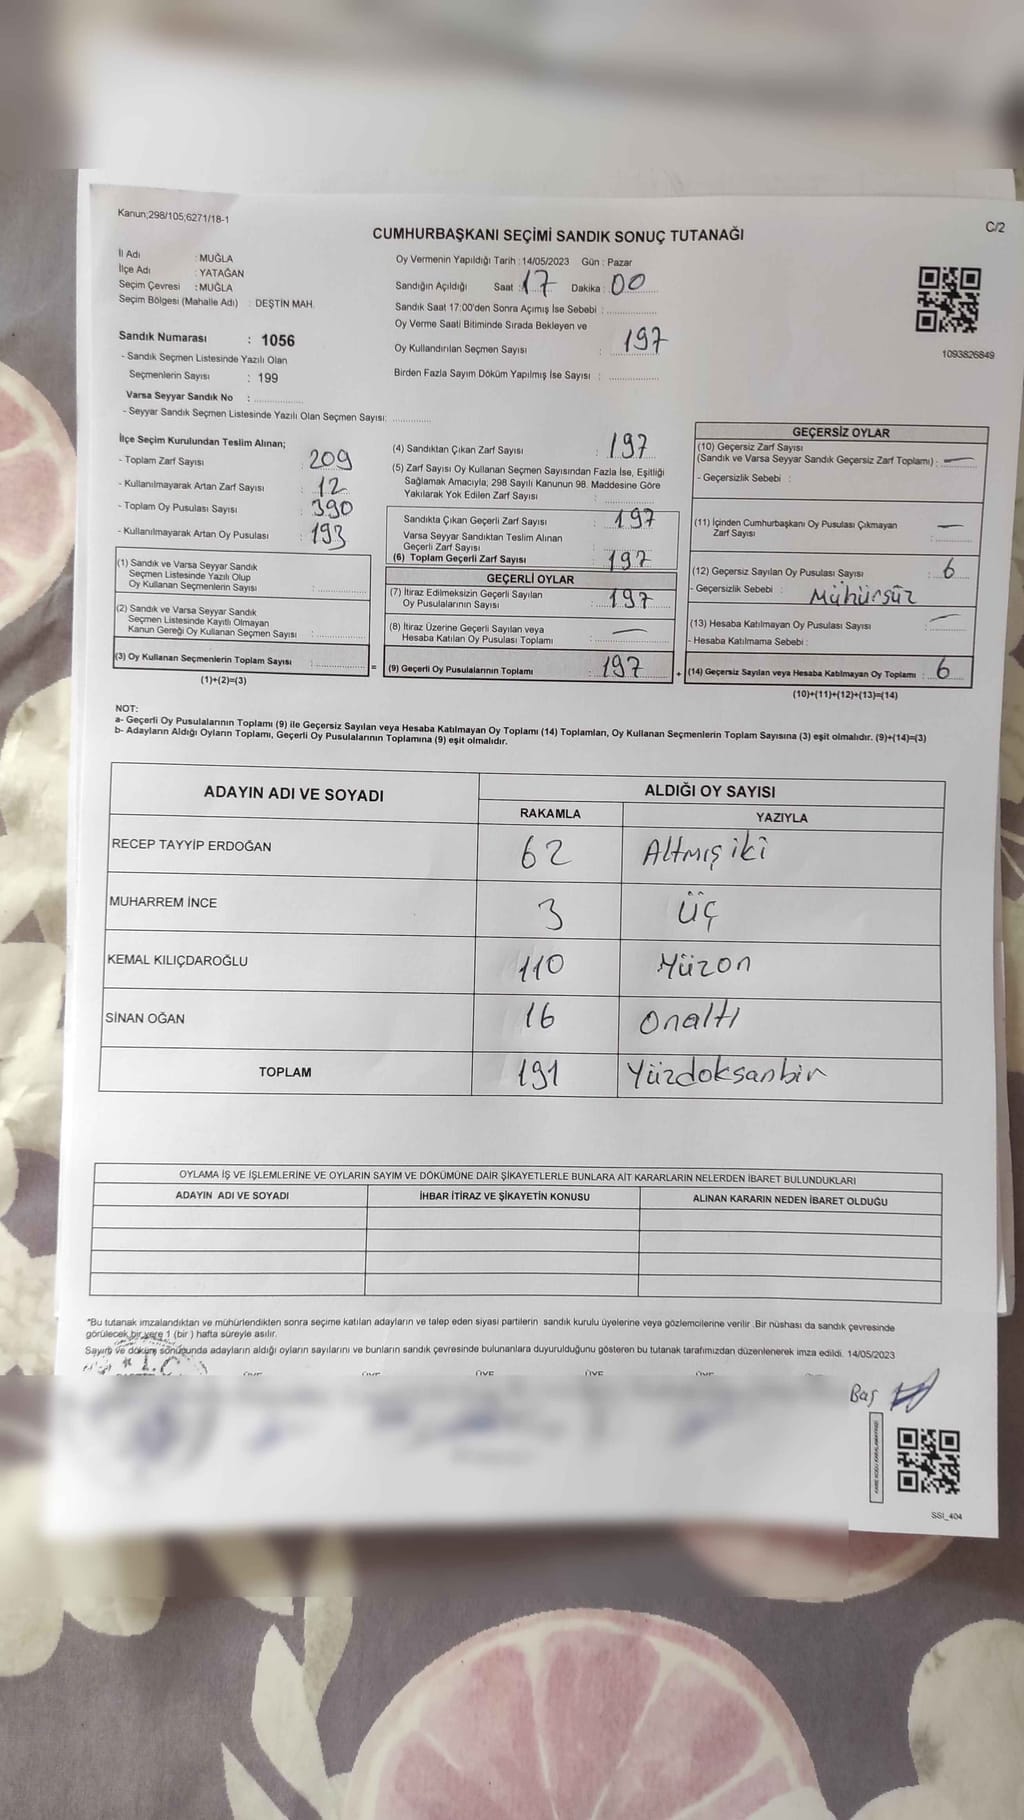 Kanun;298/105;6271/18-1
C/2
CUMHURBAŞKANI SEÇİMİ SANDIK SONUÇ TUTANAĞI
İl Adı : MUĞLA
İlçe Adı : YATAĞAN
Seçim Çevresi : MUĞLA
Seçim Bölgesi (Mahalle Adı) : DEŞTİN MAH.
Oy Vermenin Yapıldığı Tarih : 14/05/2023 Gün : Pazar
Sandığın Açıldığı Saat : 17 Dakika : 00
Sandık Saat 17:00'den Sonra Açımış İse Sebebi :
Oy Verme Saati Bitiminde Sırada Bekleyen ve
Oy Kullandırılan Seçmen Sayısı : 197
Birden Fazla Sayım Döküm Yapılmış İse Sayısı :
1093826849
Sandık Numarası : 1056
- Sandık Seçmen Listesinde Yazılı Olan
Seçmenlerin Sayısı : 199
Varsa Seyyar Sandık No :
- Seyyar Sandık Seçmen Listesinde Yazılı Olan Seçmen Sayısı:
İlçe Seçim Kurulundan Teslim Alınan;
- Toplam Zarf Sayısı : 209
- Kullanılmayarak Artan Zarf Sayısı : 12
- Toplam Oy Pusulası Sayısı : 390
- Kullanılmayarak Artan Oy Pusulası : 193
(1) Sandık ve Varsa Seyyar Sandık
Seçmen Listesinde Yazılı Olup
Oy Kullanan Seçmenlerin Sayısı :
(2) Sandık ve Varsa Seyyar Sandık
Seçmen Listesinde Kayıtlı Olmayan
Kanun Gereği Oy Kullanan Seçmen Sayısı :
(3) Oy Kullanan Seçmenlerin Toplam Sayısı :
(1)+(2)=(3)
=
(4) Sandıktan Çıkan Zarf Sayısı : 197
(5) Zarf Sayısı Oy Kullanan Seçmen Sayısından Fazla İse, Eşitliği
Sağlamak Amacıyla; 298 Sayılı Kanunun 98. Maddesine Göre
Yakılarak Yok Edilen Zarf Sayısı :
Sandıkta Çıkan Geçerli Zarf Sayısı : 197
Varsa Seyyar Sandıktan Teslim Alınan
Geçerli Zarf Sayısı :
(6) Toplam Geçerli Zarf Sayısı : 197
GEÇERLİ OYLAR
(7) İtiraz Edilmeksizin Geçerli Sayılan
Oy Pusulalarının Sayısı : 197
(8) İtiraz Üzerine Geçerli Sayılan veya
Hesaba Katılan Oy Pusulası Toplamı : —
(9) Geçerli Oy Pusulalarının Toplamı : 197
+
GEÇERSİZ OYLAR
(10) Geçersiz Zarf Sayısı
(Sandık ve Varsa Seyyar Sandık Geçersiz Zarf Toplamı) : —
- Geçersizlik Sebebi :
(11) İçinden Cumhurbaşkanı Oy Pusulası Çıkmayan
Zarf Sayısı : —
(12) Geçersiz Sayılan Oy Pusulası Sayısı : 6
- Geçersizlik Sebebi : Mühürsüz
(13) Hesaba Katılmayan Oy Pusulası Sayısı : —
- Hesaba Katılmama Sebebi :
(14) Geçersiz Sayılan veya Hesaba Katılmayan Oy Toplamı : 6
(10)+(11)+(12)+(13)=(14)
NOT:
a- Geçerli Oy Pusulalarının Toplamı (9) ile Geçersiz Sayılan veya Hesaba Katılmayan Oy Toplamı (14) Toplamları, Oy Kullanan Seçmenlerin Toplam Sayısına (3) eşit olmalıdır. (9)+(14)=(3)
b- Adayların Aldığı Oyların Toplamı, Geçerli Oy Pusulalarının Toplamına (9) eşit olmalıdır.
ADAYIN ADI VE SOYADI
ALDIĞI OY SAYISI
RAKAMLA YAZIYLA
RECEP TAYYİP ERDOĞAN 62 Altmış iki
MUHARREM İNCE 3 üç
KEMAL KILIÇDAROĞLU 110 Yüzon
SİNAN OĞAN 16 onaltı
TOPLAM 191 Yüzdoksanbir
OYLAMA İŞ VE İŞLEMLERİNE VE OYLARIN SAYIM VE DÖKÜMÜNE DAİR ŞİKAYETLERLE BUNLARA AİT KARARLARIN NELERDEN İBARET BULUNDUKLARI
ADAYIN ADI VE SOYADI İHBAR İTİRAZ VE ŞİKAYETİN KONUSU ALINAN KARARIN NEDEN İBARET OLDUĞU
*Bu tutanak imzalandıktan ve mühürlendikten sonra seçime katılan adayların ve talep eden siyasi partilerin sandık kurulu üyelerine veya gözlemcilerine verilir .Bir nüshası da sandık çevresinde
görülecek bir yere 1 (bir ) hafta süreyle asılır.
Sayım ve döküm sonucunda adayların aldığı oyların sayılarını ve bunların sandık çevresinde bulunanlara duyurulduğunu gösteren bu tutanak tarafımızdan düzenlenerek imza edildi. 14/05/2023
T.C.
ÜYE ÜYE ÜYE ÜYE ÜYE
Baş
SSI_404